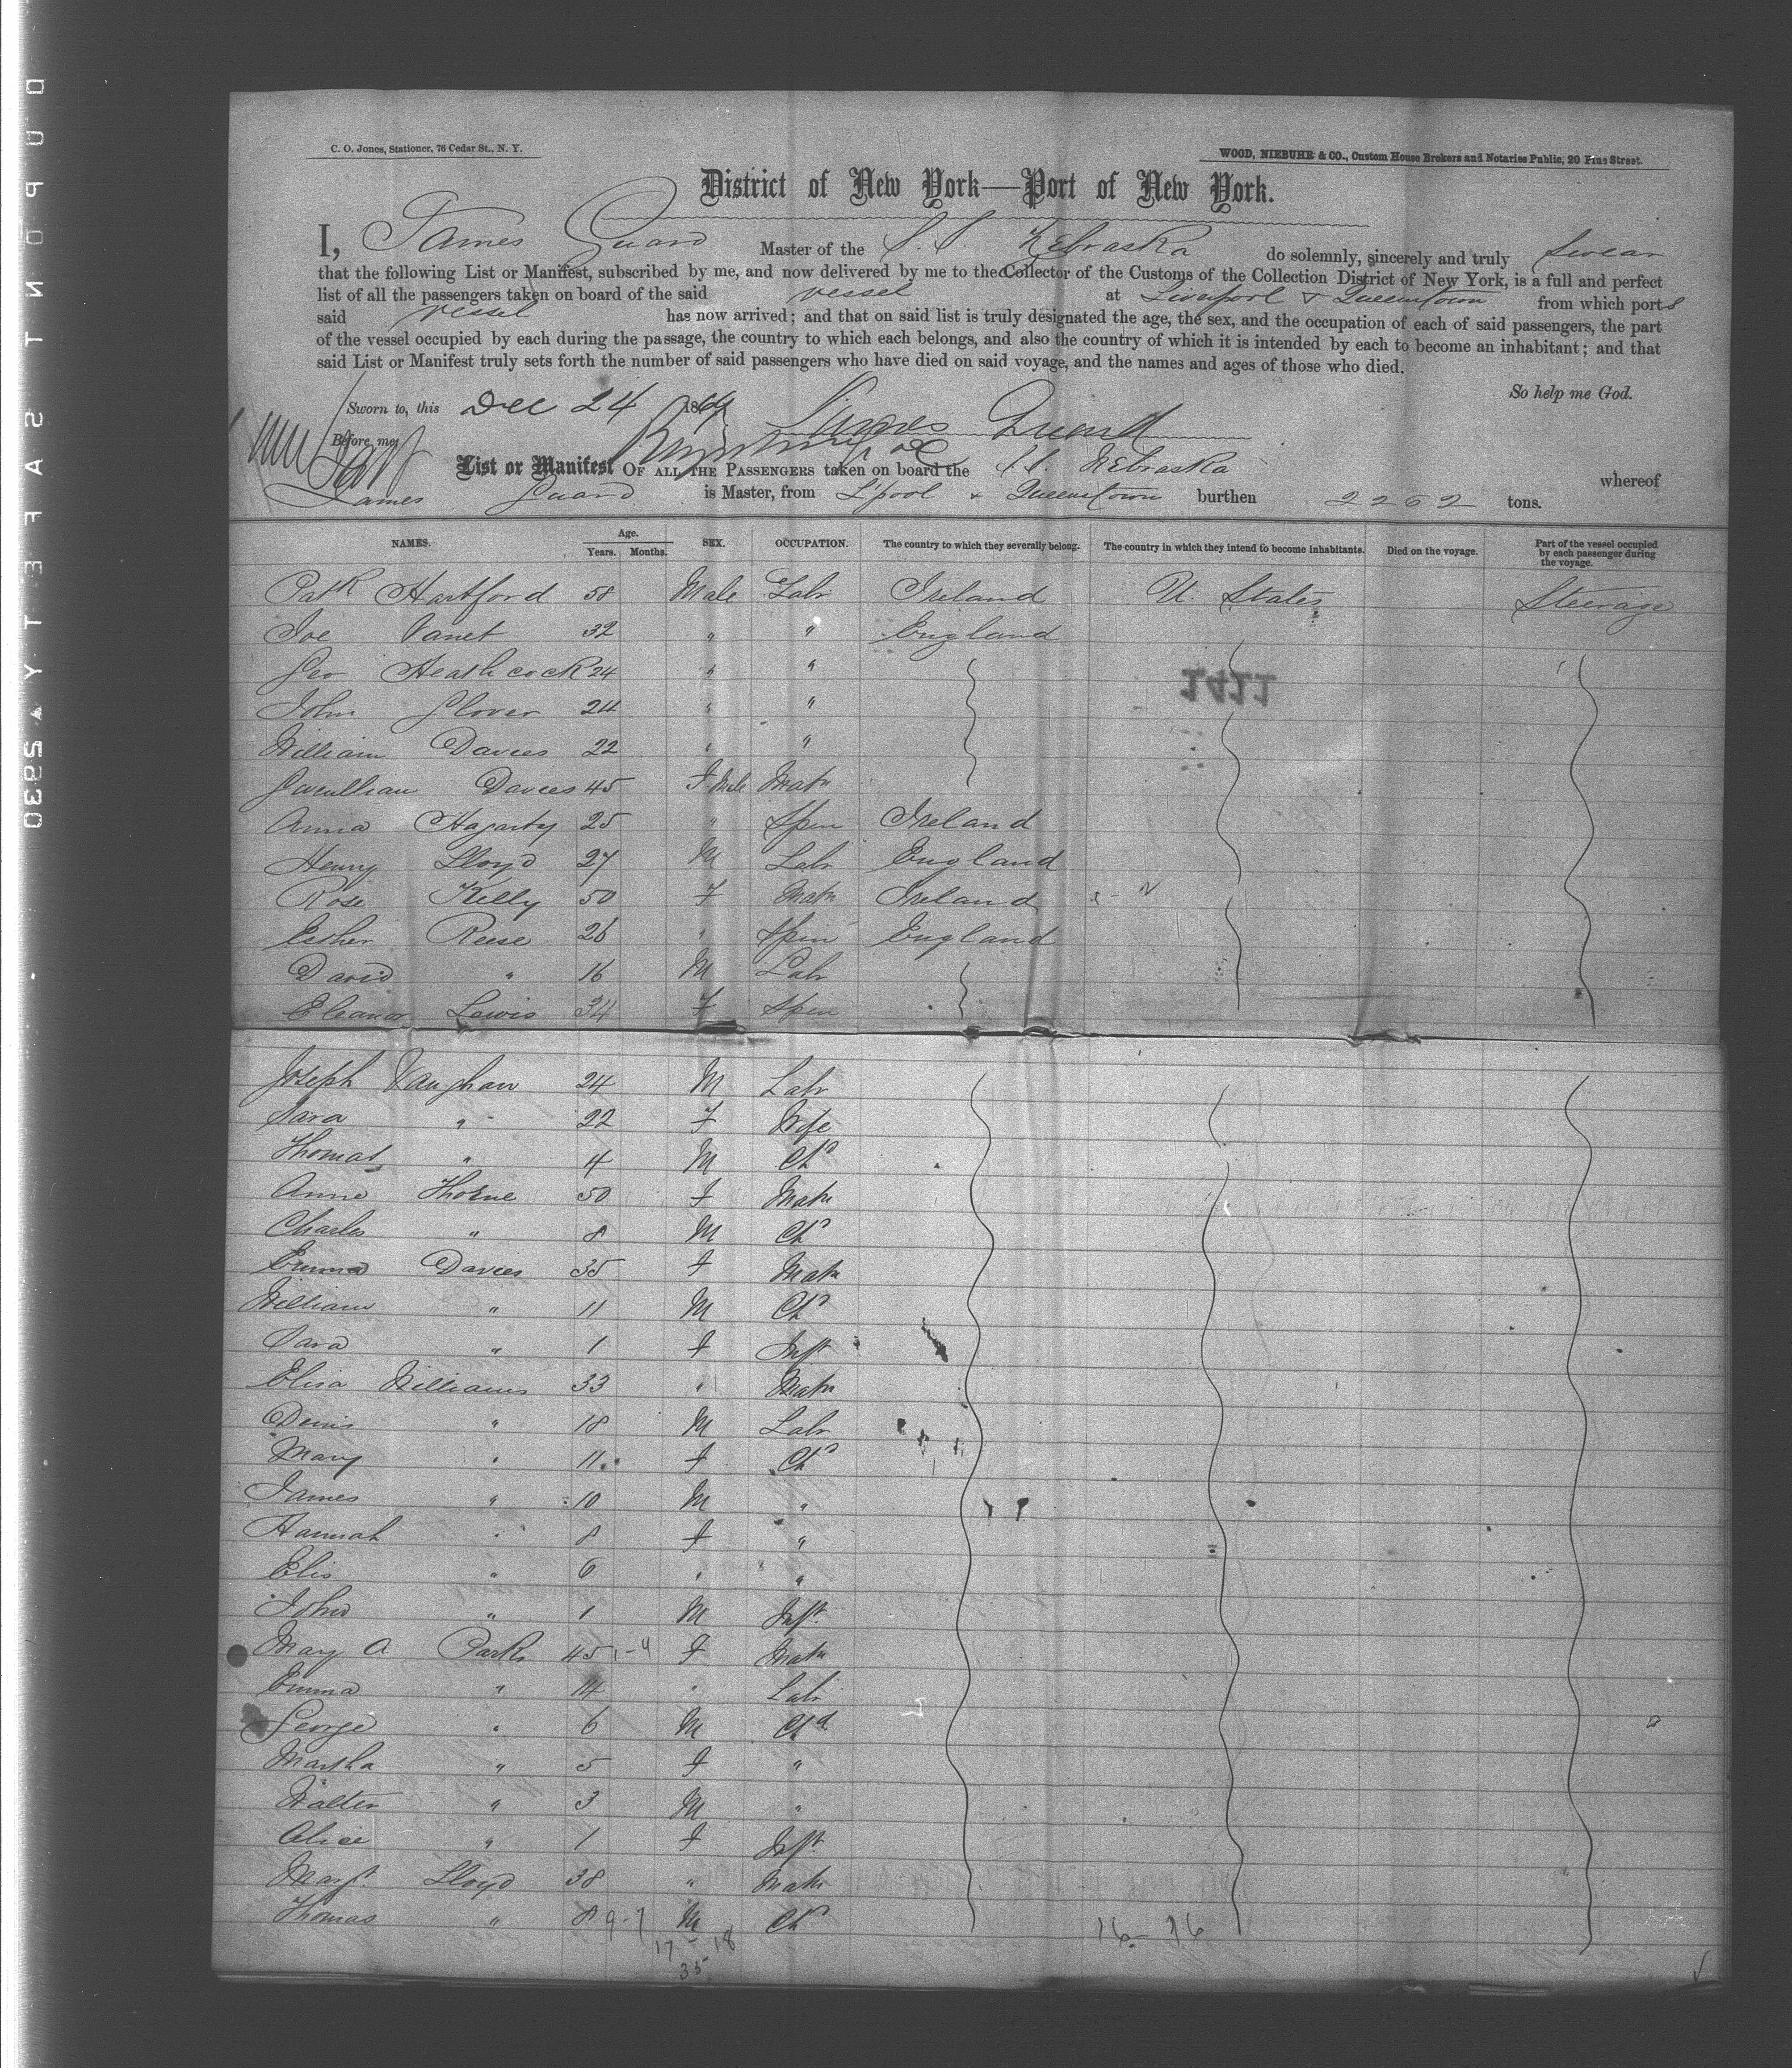 C. O. Jones, Stationer, 76 Cedar St., N. Y.
WOOD, NIEBUHR & CO., Custom House Brokers and Notaries Public, 20 Pine Street.
District of New York—Port of New York.
I, James Guard Master of the S. S. Nebraska do solemnly, sincerely and truly swear
that the following List or Manifest, subscribed by me, and now delivered by me to the Collector of the Customs of the Collection District of New York, is a full and perfect
list of all the passengers taken on board of the said vessel at Liverpool & Queenstown from which ports
said vessel has now arrived; and that on said list is truly designated the age, the sex, and the occupation of each of said passengers, the part
of the vessel occupied by each during the passage, the country to which each belongs, and also the country of which it is intended by each to become an inhabitant; and that
said List or Manifest truly sets forth the number of said passengers who have died on said voyage, and the names and ages of those who died.
So help me God.
Sworn to, this Dec 24 1869 James Guard
Before me,
List or Manifest OF ALL THE PASSENGERS taken on board the S. S. Nebraska whereof
James Guard is Master, from L'pool & Queenstown burthen 2262 tons.
NAMES. Age. Years. Months. SEX. OCCUPATION. The country to which they severally belong. The country in which they intend to become inhabitants. Died on the voyage. Part of the vessel occupied by each passenger during the voyage.
Patk Hartford 58 Male Labr Ireland U. States Steerage
Joe 32 " " England
Geo Heathcock 24 " "
1411
John Glover 24 " "
William Davies 22 " "
Davies 45 F Male Matn
Anna Hagarty 25 " Spin Ireland
Henry Lloyd 27 M Labr England
Rose Kelly 50 F Matn Ireland
Esther Reese 26 " Spin England
David " 16 M Labr
Eleanor Lewis 34 F Spin
Joseph Vaughan 24 M Labr
Sara " 22 F Wife
Thomas " 4 M Chd
Anne Thorne 50 F Matn
Charles " 8 M Chd
Emma Davies 35 F Matn
William " 11 M Chd
Sara " 1 F Inft
Elisa Williams 33 " Matn
Denis " 18 M Labr
Mary " 11 F Chd
James " 10 M "
Hannah " 8 F "
Elis " 6 " "
John " 1 M Inft
Mary A Parks 45 1-4 F Matn
Emma " 14 " Labr
George " 6 M Chd
Martha " 5 F "
Walter " 3 M "
Alice " 1 F Inft
Margt Lloyd 38 " Matn
Thomas " 8 9-7 M Chd
16-16
17-18
35
DUPONT SAFETY ▲ 25930